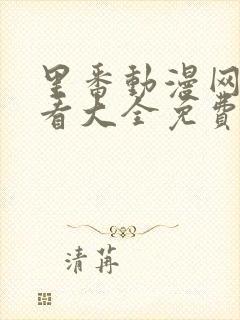 里番動漫网
看大全免費
清苒